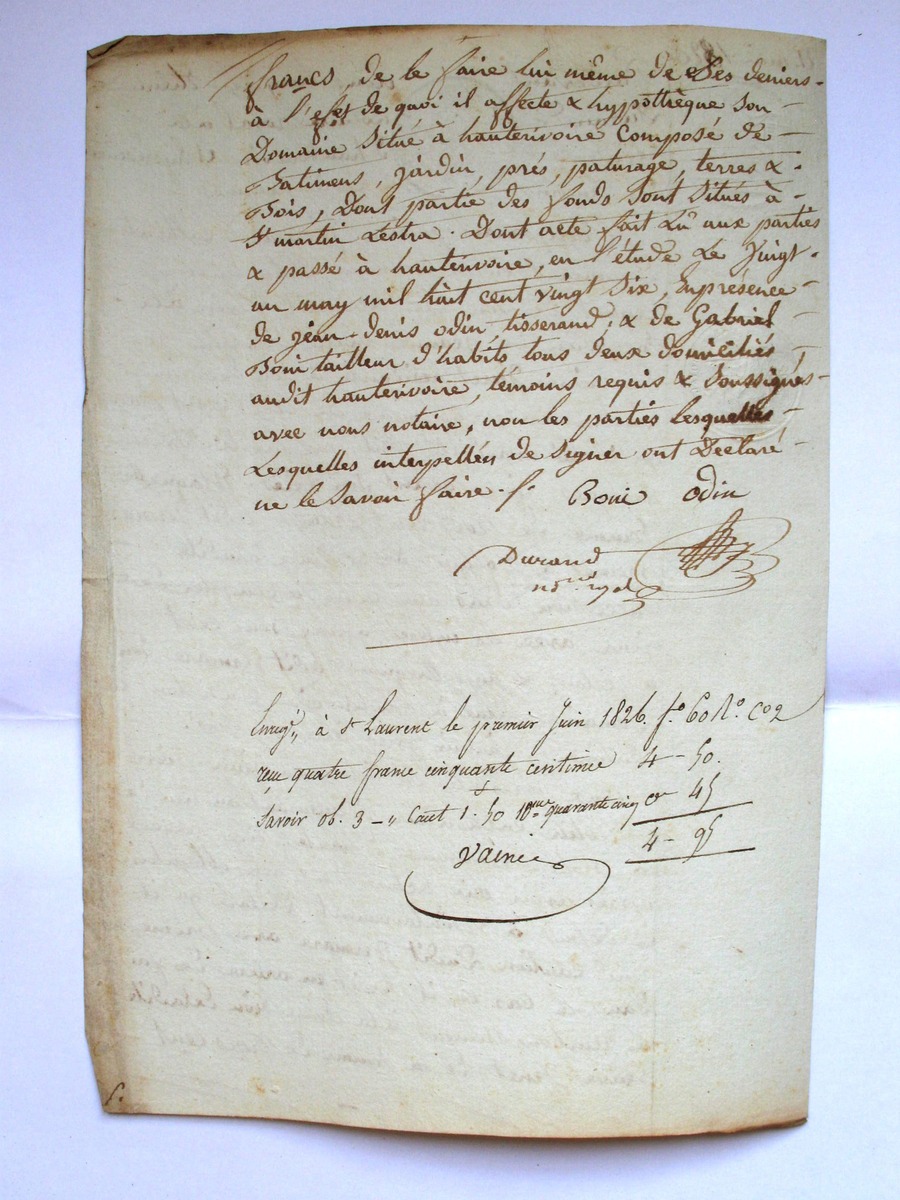 francs, de le faire lui même de ses deniers -
à l'effet de quoi il affecte & hypothèque son -
Domaine situé à hauterivoire composé de -
Batimens, jardin, prés, paturage, terres & -
Bois, Dont partie des fonds sont situés à -
St martin Lestra. Dont acte fait Lû aux parties
& passé à hauterivoire, en l'étude Le vingt -
un may mil huit cent vingt six, Enprésence -
de jean-denis odin tisserand, & de Gabriel -
Boni tailleur d'habits tous deux domiciliés -
audit hauterivoire, témoins requis & soussignés -
avec nous notaire, non les parties lesquelles -
Lesquelles interpellées de signer ont Déclaré -
ne le savoir faire ./.  Boni  odin
Durand
nore. royal
Enregé. à St Laurent le premier Juin 1826. fo. 60 Ro. Co 2
reçu quatre francs cinquante centimes 4 - 50.
savoir ob. 3 - " Caut 1. 50 10me quarante cinq ce 45
4 - 95